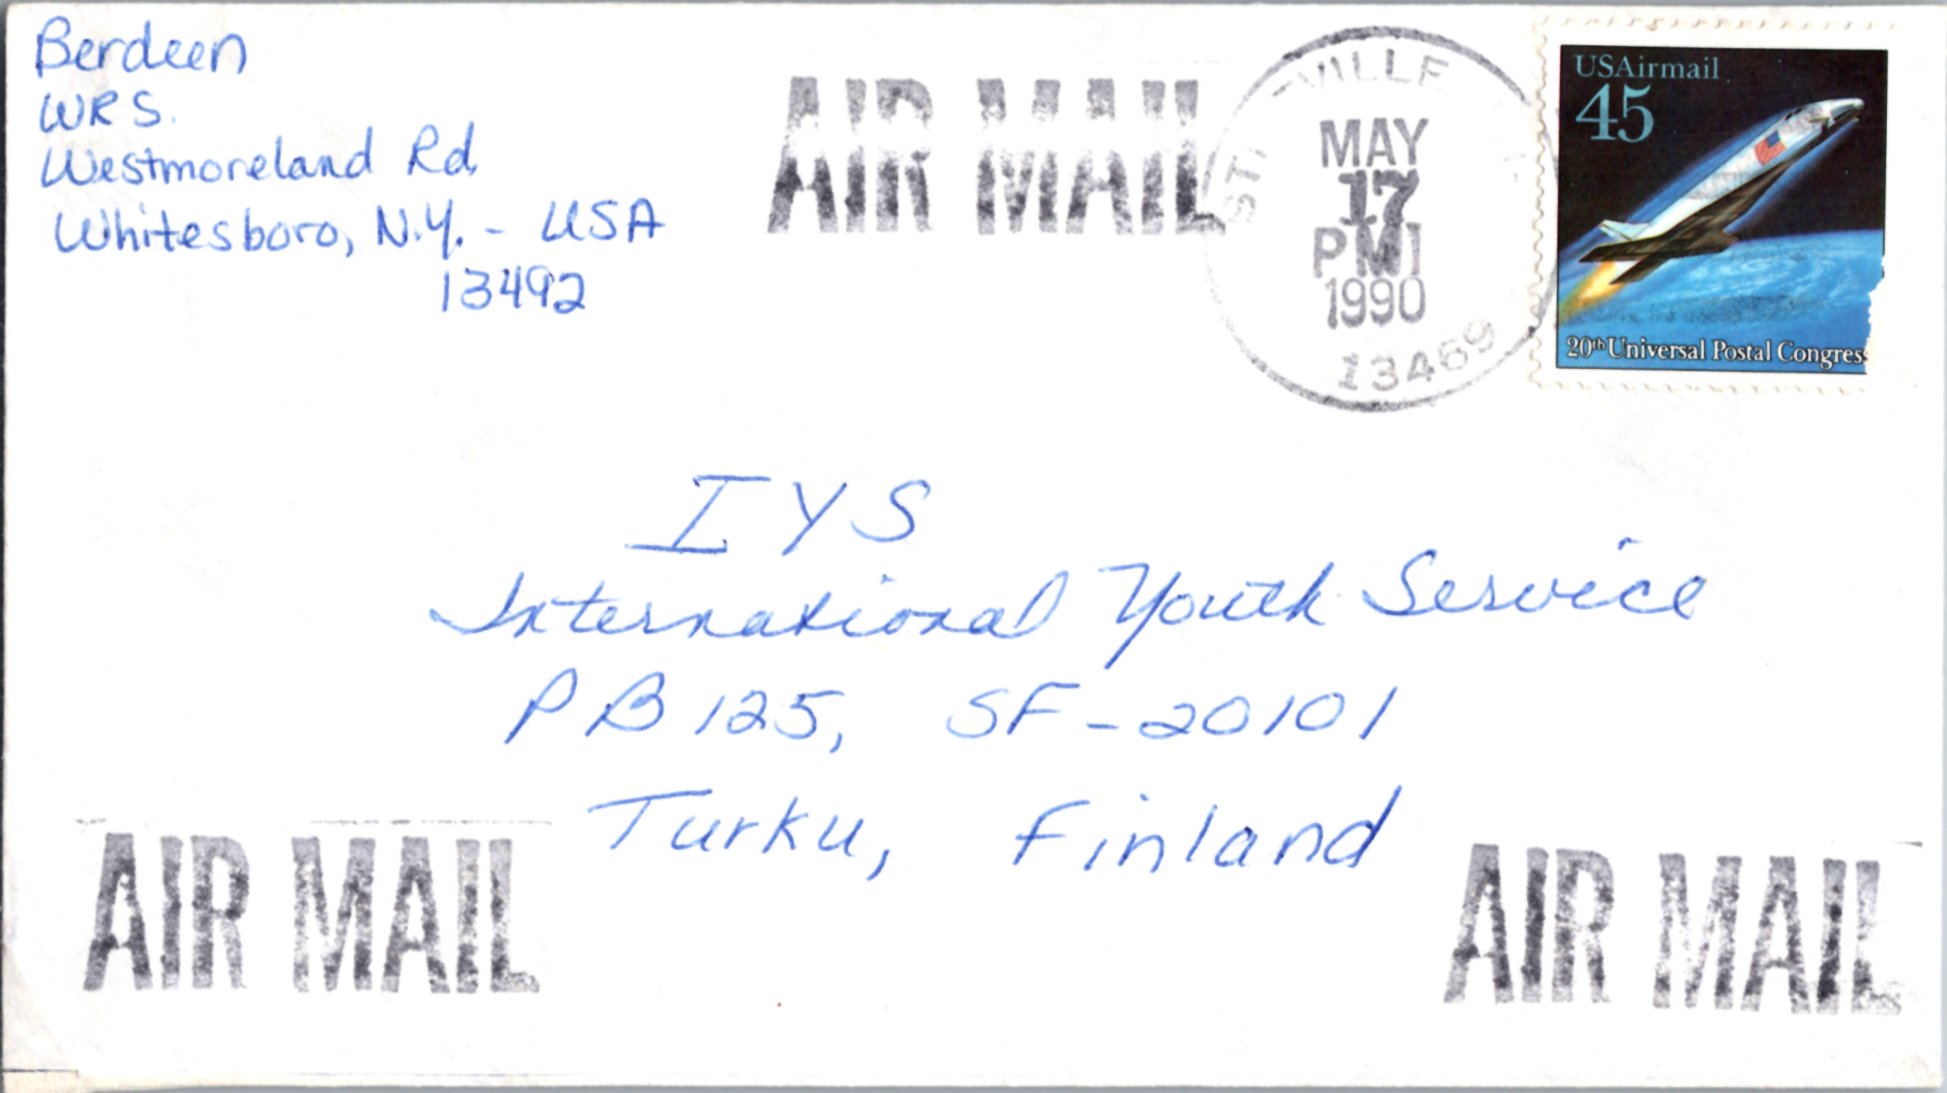 Berdeen
WRS.
Westmoreland Rd
Whitesboro, N.Y. - USA
13492
AIR MAIL
VILLE
MAY
17
PM
1990
13469
USAirmail
45
20th Universal Postal Congress
IYS
International Youth Service
PB 125, SF-20101
Turku, Finland
AIR MAIL
AIR MAIL